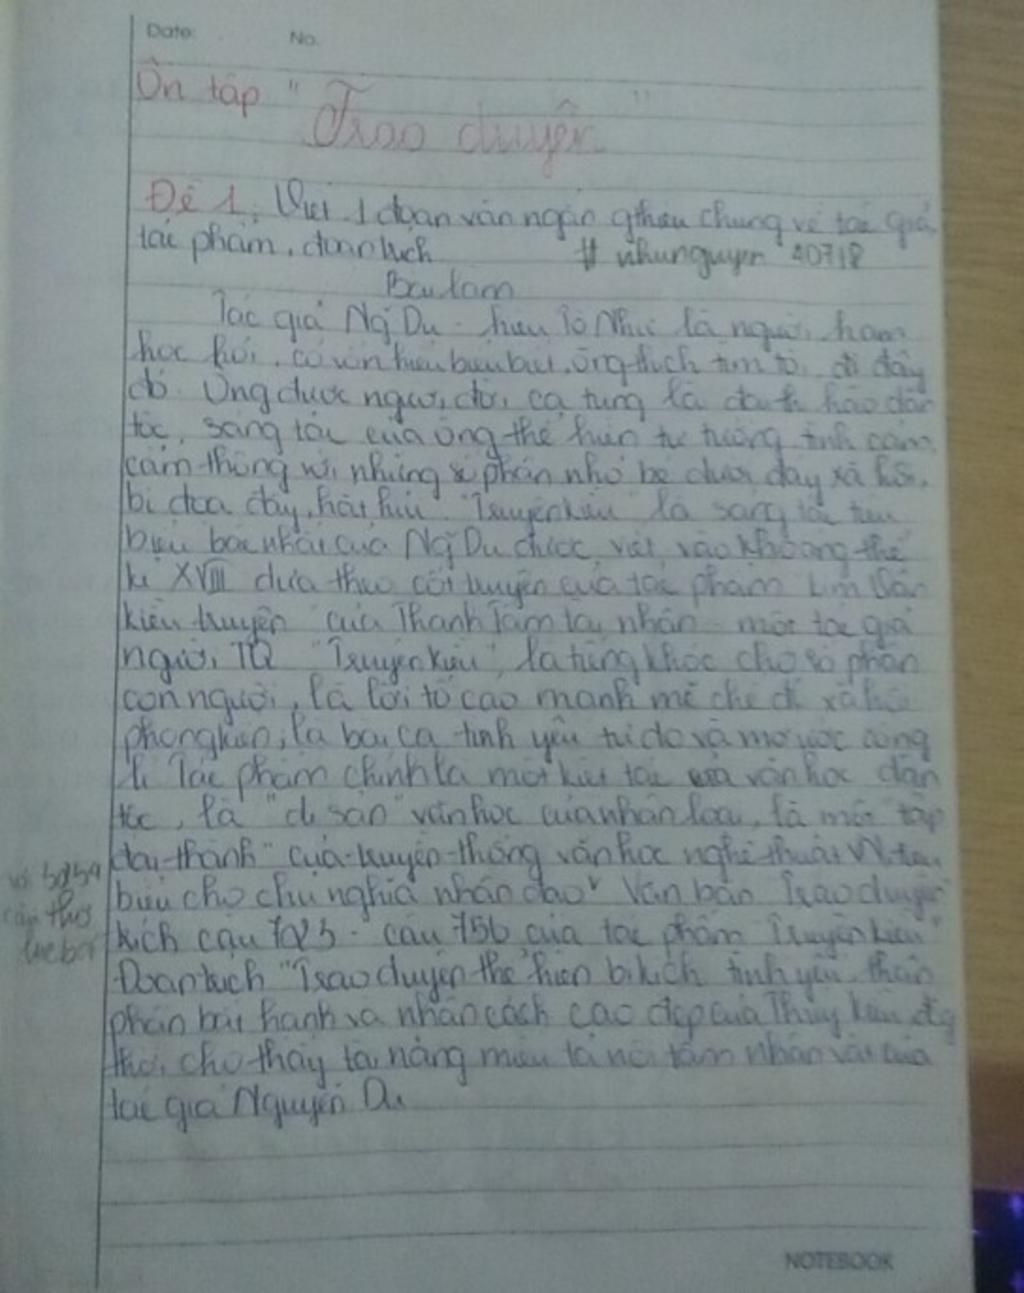 Date: No.
Ôn tập "Trao duyên"
Đề 1: Viết 1 đoạn văn ngắn gthiệu chung về tác giả
tác phẩm, đoạn trích # nhunguyen 40718
Bài làm
Tác giả Ng̃ Du - hiệu Tố Như là người ham
học hỏi, có vốn hiểu biết, ông thích tìm tòi, đi đây
đó. Ông được người đời ca tụng là danh hào dân
tộc, sáng tác của ông thể hiện tư tưởng tình cảm
cảm thông với những số phận nhỏ bé dưới đáy xã hội,
bị đọa đày, hắt hủi. "Truyện Kiều" là sáng tác tiêu
biểu bậc nhất của Ng̃ Du được viết vào khoảng thế
kỉ XVIII dựa theo cốt truyện của tác phẩm Kim Vân
Kiều truyện của Thanh Tâm tài nhân - một tác giả
người TQ. "Truyện Kiều" là tiếng khóc cho số phận
con người, là lời tố cáo mạnh mẽ chế độ xã hội
phong kiến, là bài ca tình yêu tự do và mơ ước công
lí. Tác phẩm chính là một kiệt tác của văn học dân
tộc, là "di sản" văn học của nhân loại, là một "tập
đại thành" của truyền thống văn học nghệ thuật VN tiêu
biểu cho chủ nghĩa nhân đạo. Văn bản "Trao duyên"
trích câu 723 - câu 756 của tác phẩm "Truyện Kiều"
Đoạn trích "Trao duyên" thể hiện bi kịch tình yêu, thân
phận bất hạnh và nhân cách cao đẹp của Thúy Kiều đg̀
thời cho thấy tài năng miêu tả nội tâm nhân vật của
tác giả Nguyễn Du.
NOTEBOOK